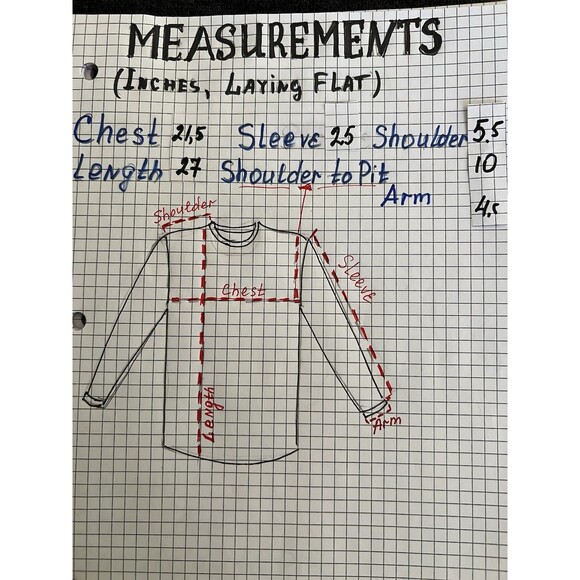 MEASUREMENTS
(INCHES, LAYING FLAT)
Chest 21,5 Sleeve 25 Shoulder 5.5
Length 27 Shoulder to Pit 10
Arm 4,5
Shoulder
Chest
Sleeve
Length
Arm